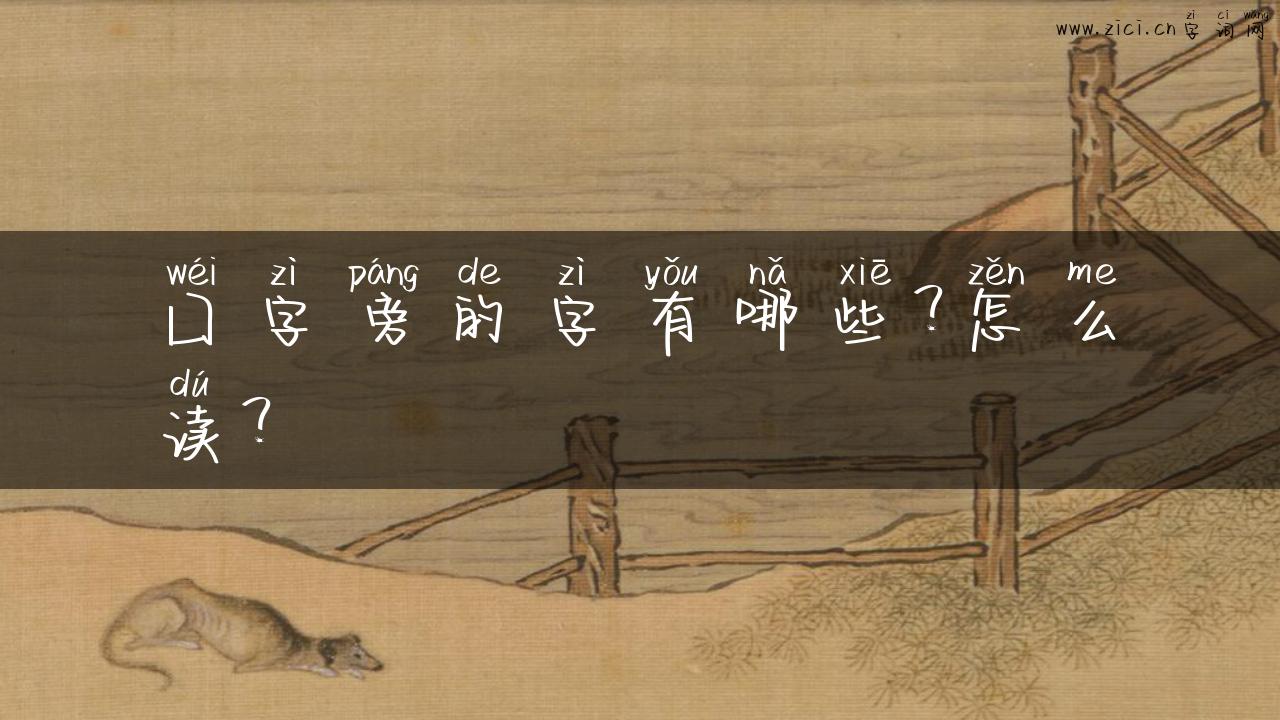 zì cí wǎng
www.zici.cn 字词网
wéi zì páng de zì yǒu nǎ xiē zěn me
囗字旁的字有哪些？怎么
dú
读？